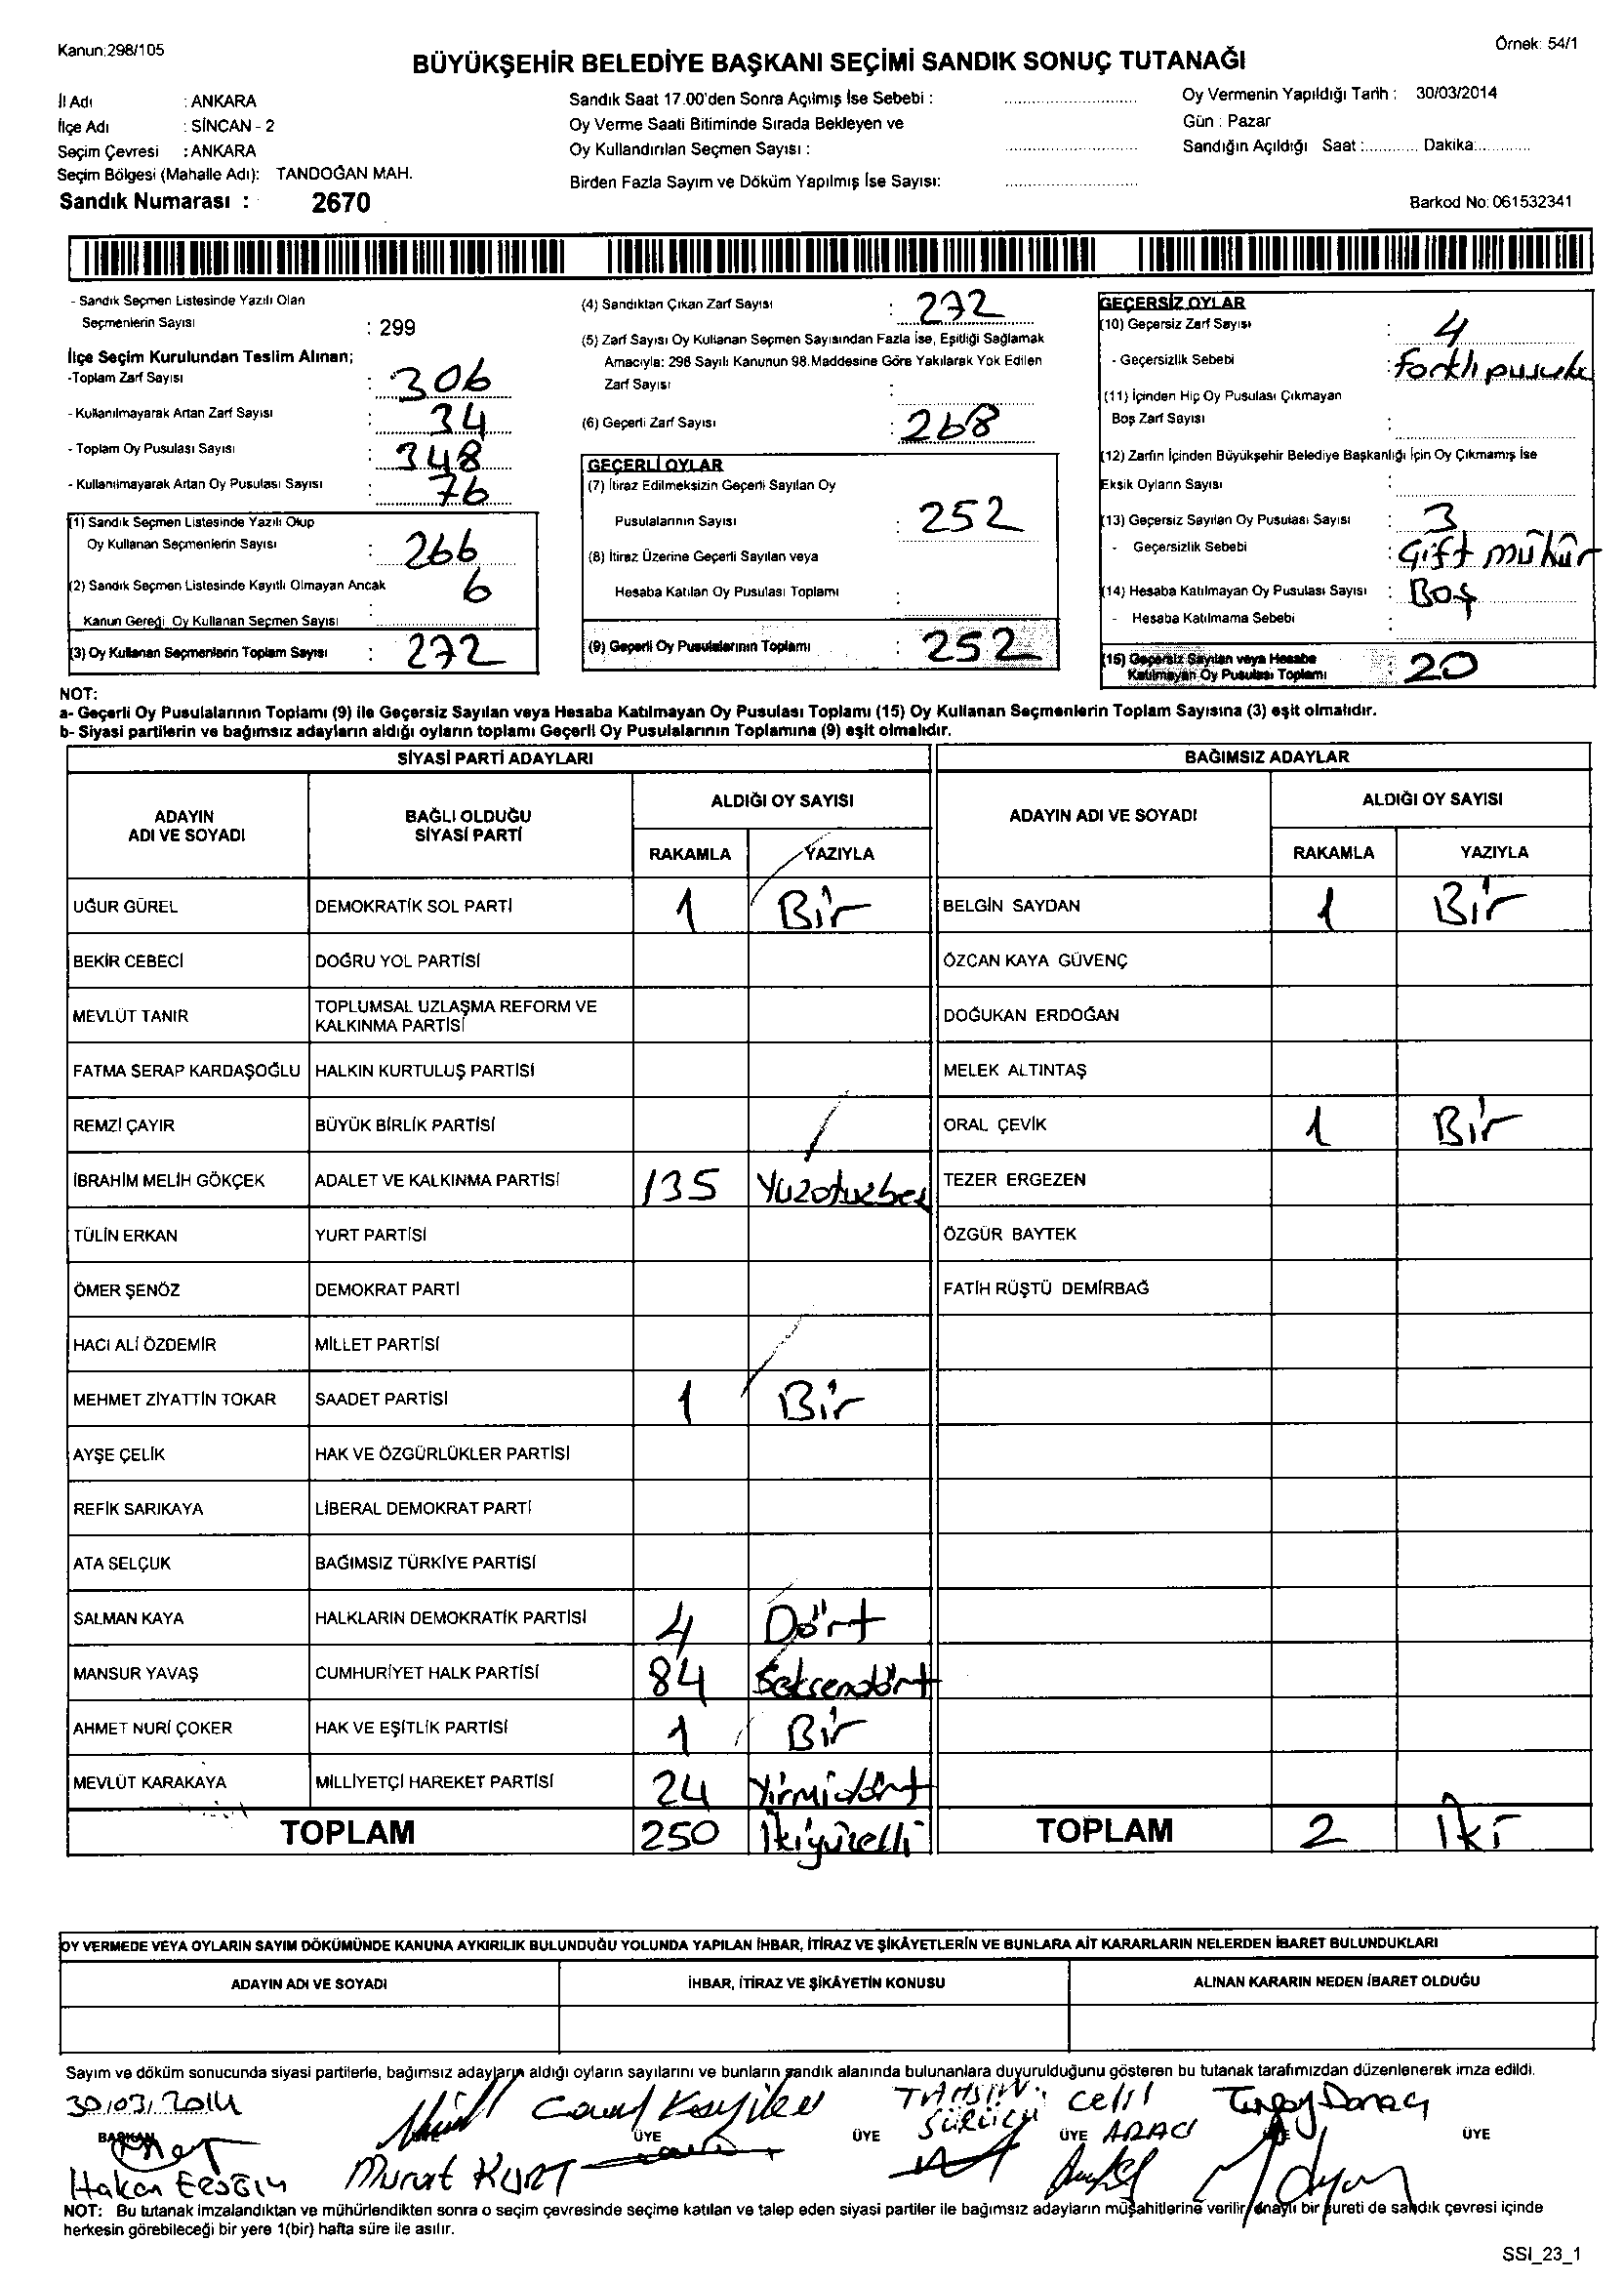 Kanun:298/105
Örnek: 54/1
BÜYÜKŞEHİR BELEDİYE BAŞKANI SEÇİMİ SANDIK SONUÇ TUTANAĞI
İl Adı : ANKARA
İlçe Adı : SİNCAN - 2
Seçim Çevresi : ANKARA
Seçim Bölgesi (Mahalle Adı): TANDOĞAN MAH.
Sandık Numarası : 2670
Sandık Saat 17.00'den Sonra Açılmış İse Sebebi :
Oy Verme Saati Bitiminde Sırada Bekleyen ve
Oy Kullandırılan Seçmen Sayısı :
Birden Fazla Sayım ve Döküm Yapılmış İse Sayısı:
Oy Vermenin Yapıldığı Tarih : 30/03/2014
Gün : Pazar
Sandığın Açıldığı Saat :............ Dakika:............
Barkod No: 061532341
- Sandık Seçmen Listesinde Yazılı Olan
Seçmenlerin Sayısı : 299
İlçe Seçim Kurulundan Teslim Alınan;
-Toplam Zarf Sayısı : 306
- Kullanılmayarak Artan Zarf Sayısı : 34
- Toplam Oy Pusulası Sayısı : 348
- Kullanılmayarak Artan Oy Pusulası Sayısı : 76
(1) Sandık Seçmen Listesinde Yazılı Olup
Oy Kullanan Seçmenlerin Sayısı : 266
(2) Sandık Seçmen Listesinde Kayıtlı Olmayan Ancak
Kanun Gereği Oy Kullanan Seçmen Sayısı : 6
(3) Oy Kullanan Seçmenlerin Toplam Sayısı : 272
(4) Sandıktan Çıkan Zarf Sayısı : 272
(5) Zarf Sayısı Oy Kullanan Seçmen Sayısından Fazla İse, Eşitliği Sağlamak
Amacıyla: 298 Sayılı Kanunun 98.Maddesine Göre Yakılarak Yok Edilen
Zarf Sayısı :
(6) Geçerli Zarf Sayısı : 268
GEÇERLİ OYLAR
(7) İtiraz Edilmeksizin Geçerli Sayılan Oy
Pusulalarının Sayısı : 252
(8) İtiraz Üzerine Geçerli Sayılan veya
Hesaba Katılan Oy Pusulası Toplamı :
(9) Geçerli Oy Pusulalarının Toplamı : 252
GEÇERSİZ OYLAR
(10) Geçersiz Zarf Sayısı : 4
- Geçersizlik Sebebi : farklı pusula
(11) İçinden Hiç Oy Pusulası Çıkmayan
Boş Zarf Sayısı :
(12) Zarfın İçinden Büyükşehir Belediye Başkanlığı İçin Oy Çıkmamış İse
Eksik Oyların Sayısı :
(13) Geçersiz Sayılan Oy Pusulası Sayısı : 3
- Geçersizlik Sebebi : Çift mühür
(14) Hesaba Katılmayan Oy Pusulası Sayısı : Boş
- Hesaba Katılmama Sebebi :
(15) Geçersiz Sayılan veya Hesaba
Katılmayan Oy Pusulası Toplamı : 20
NOT:
a- Geçerli Oy Pusulalarının Toplamı (9) ile Geçersiz Sayılan veya Hesaba Katılmayan Oy Pusulası Toplamı (15) Oy Kullanan Seçmenlerin Toplam Sayısına (3) eşit olmalıdır.
b- Siyasi partilerin ve bağımsız adayların aldığı oyların toplamı Geçerli Oy Pusulalarının Toplamına (9) eşit olmalıdır.
SİYASİ PARTİ ADAYLARI
ADAYIN ADI VE SOYADI
BAĞLI OLDUĞU SİYASİ PARTİ
ALDIĞI OY SAYISI
RAKAMLA YAZIYLA
UĞUR GÜREL DEMOKRATİK SOL PARTİ 1 Bir
BEKİR CEBECİ DOĞRU YOL PARTİSİ
MEVLÜT TANIR TOPLUMSAL UZLAŞMA REFORM VE KALKINMA PARTİSİ
FATMA SERAP KARDAŞOĞLU HALKIN KURTULUŞ PARTİSİ
REMZİ ÇAYIR BÜYÜK BİRLİK PARTİSİ
İBRAHİM MELİH GÖKÇEK ADALET VE KALKINMA PARTİSİ 135 Yüzotuzbeş
TÜLİN ERKAN YURT PARTİSİ
ÖMER ŞENÖZ DEMOKRAT PARTİ
HACI ALİ ÖZDEMİR MİLLET PARTİSİ
MEHMET ZİYATTİN TOKAR SAADET PARTİSİ 1 Bir
AYŞE ÇELİK HAK VE ÖZGÜRLÜKLER PARTİSİ
REFİK SARIKAYA LİBERAL DEMOKRAT PARTİ
ATA SELÇUK BAĞIMSIZ TÜRKİYE PARTİSİ
SALMAN KAYA HALKLARIN DEMOKRATİK PARTİSİ 4 Dört
MANSUR YAVAŞ CUMHURİYET HALK PARTİSİ 84 Seksendört
AHMET NURİ ÇOKER HAK VE EŞİTLİK PARTİSİ 1 Bir
MEVLÜT KARAKAYA MİLLİYETÇİ HAREKET PARTİSİ 24 Yirmidört
TOPLAM 250 İkiyüzelli
BAĞIMSIZ ADAYLAR
ADAYIN ADI VE SOYADI
ALDIĞI OY SAYISI
RAKAMLA YAZIYLA
BELGİN SAYDAN 1 Bir
ÖZCAN KAYA GÜVENÇ
DOĞUKAN ERDOĞAN
MELEK ALTINTAŞ
ORAL ÇEVİK 1 Bir
TEZER ERGEZEN
ÖZGÜR BAYTEK
FATİH RÜŞTÜ DEMİRBAĞ
TOPLAM 2 İki
OY VERMEDE VEYA OYLARIN SAYIM DÖKÜMÜNDE KANUNA AYKIRILIK BULUNDUĞU YOLUNDA YAPILAN İHBAR, İTİRAZ VE ŞİKÂYETLERİN VE BUNLARA AİT KARARLARIN NELERDEN İBARET BULUNDUKLARI
ADAYIN ADI VE SOYADI İHBAR, İTİRAZ VE ŞİKÂYETİN KONUSU ALINAN KARARIN NEDEN İBARET OLDUĞU
Sayım ve döküm sonucunda siyasi partilerle, bağımsız adayların aldığı oyların sayılarını ve bunların sandık alanında bulunanlara duyurulduğunu gösteren bu tutanak tarafımızdan düzenlenerek imza edildi.
30/03/2014 TAHSİN Celil
SÜRÜCÜ ARACI
BAŞKAN ÜYE ÜYE ÜYE ÜYE
Hakan Murat KURT
NOT: Bu tutanak imzalandıktan ve mühürlendikten sonra o seçim çevresinde seçime katılan ve talep eden siyasi partiler ile bağımsız adayların müşahitlerine verilir, onaylı bir sureti de sandık çevresi içinde
herkesin görebileceği bir yere 1(bir) hafta süre ile asılır.
SSI_23_1